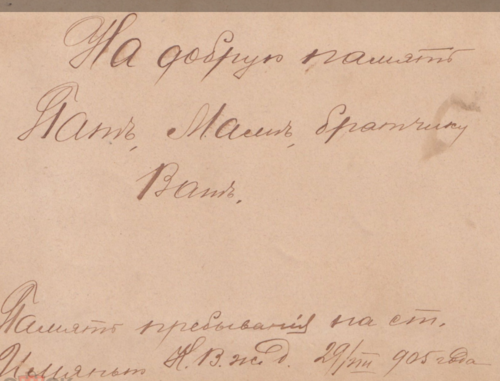 На добрую память
Папѣ, Мамѣ, братчику
Ванѣ.
Память пребыванія на ст.
К. В. ж. д. 29/VIII 905 года